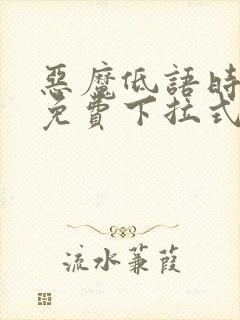 惡魔低語時
免費下拉式
流水蒹葭